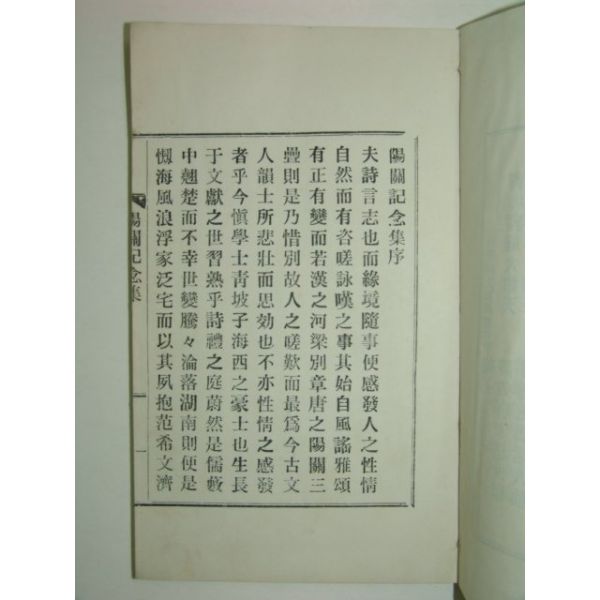 陽關記念集序
夫詩言志也而緣境隨事使感發人之性情
自然而有咨嗟詠嘆之事其始自風謠雅頌
有正有變而若漢之河梁別章唐之陽關三
疊則是乃惜別故人之嗟歎而最爲今古文
人韻士所悲壯而思効也不亦性情之感發
者乎今愼學士靑坡子海西之豪士也生長
于文獻之世習熟乎詩禮之庭蔚然是儒藪
中翹楚而不幸世變騰々淪落湖南則便是
海風浪浮家泛宅而以其夙抱范希文濟
陽關記念集
一